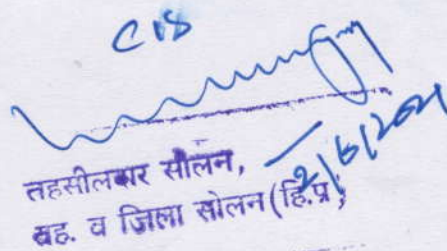 C18
तहसीलदार सोलन,
तह. व जिला सोलन (हि.प्र.)
2/6/2021